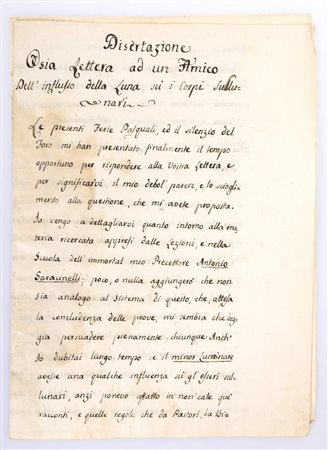 Disertazione
Osia Lettera ad un Amico
Dell' influsso della Luna su i Corpi Sullu-
nari
Le presenti Ferie Pasquali, ed il silenzio del
Foro mi han presentato finalmente il tempo
opportuno per rispondere alla Vostra Lettera, e
per significarvi il mio debol' parere, e lo sciogli-
mento alla questione, che mi avete proposta.
Io vengo a dettagliarvi quanto intorno alla ma
teria ricercata appresi dalle Lezioni, e nella
Scuola dell' immortal mio Precettore Antonio
Saracinelli; poco, o nulla aggiungerò che non
sia analogo al sistema di questo, che, attesa
la concludenza delle prove, mi sembra che deg
gia persuadere pienamente chiunque. Anch'
Io dubitai lungo tempo se il minor Luminare
avesse una qualche influenza su gl' esseri sul-
lunari, anzi ponevo affatto in non cale que'
racconti, e quelle regole che da Pastori, da Bi-